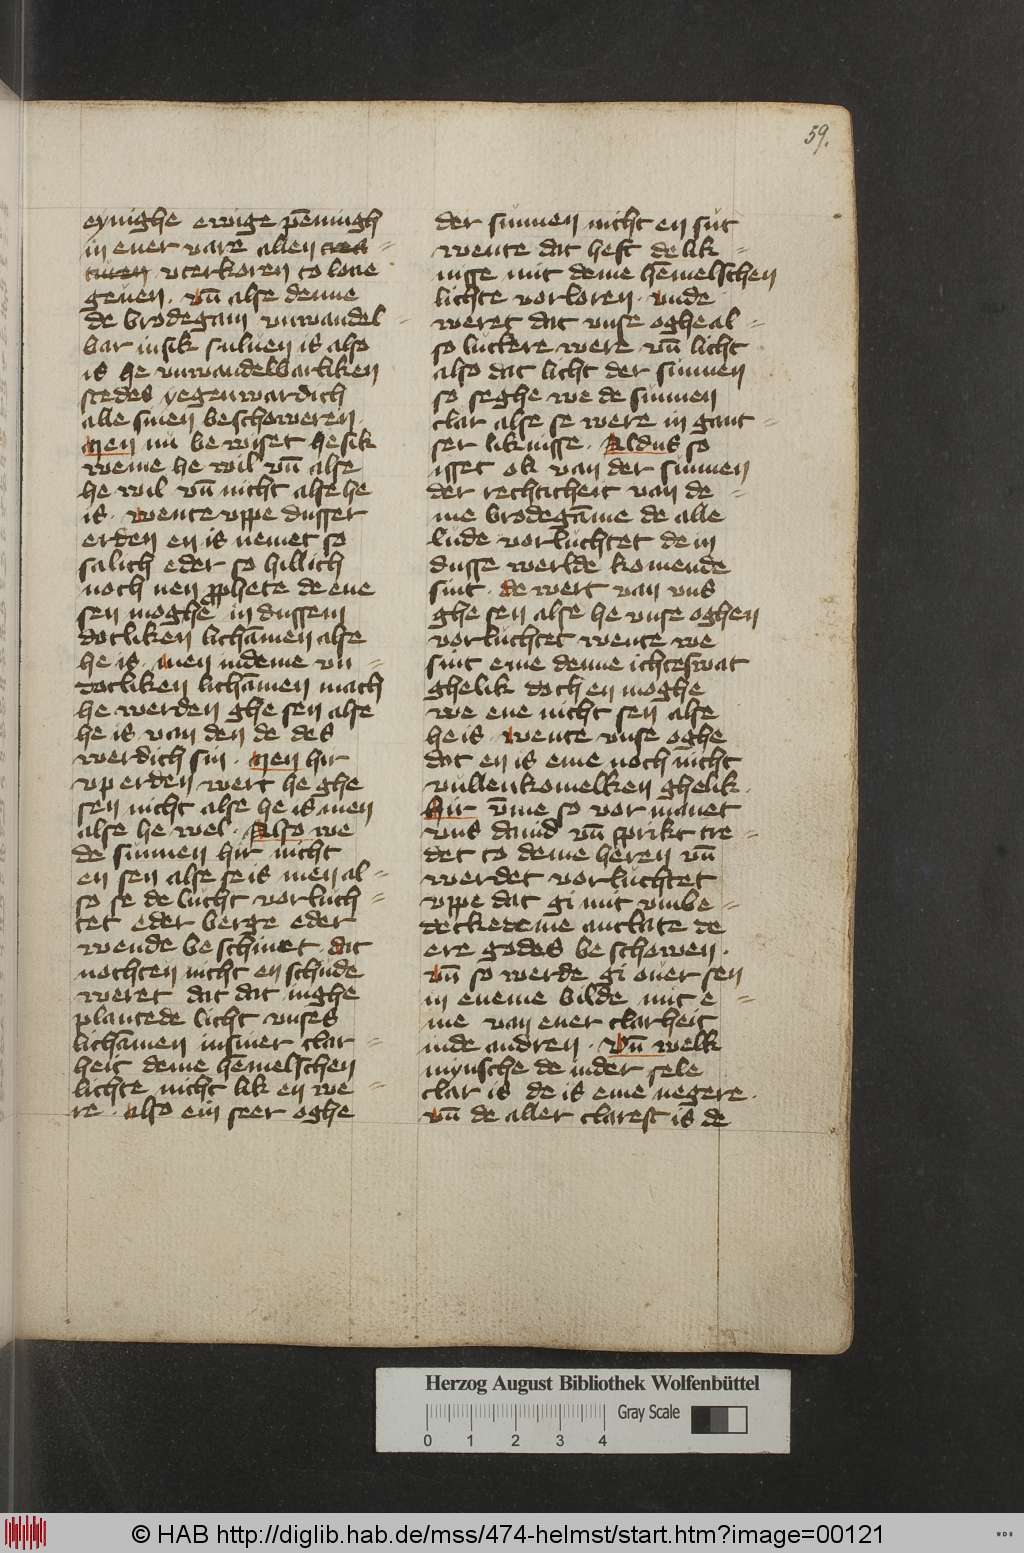 59.
eynighe ewige pēningh
in ener vare allen creā-
turen vterkoren to lone
geuen. vn̄ alse denne
de brodegam vnwandel-
bar in sik suluen is also
is he vnwandelbarliken
stedes yegenwardich
alle sinen beschoweren.
Men nu be wiset he sik
weme he wil vn̄ alse
he wil vn̄ nicht alse he
is. wente vppe dusser
erden en is nemet so
salich eder so hillich
noch nen pphete de ene
sen moghe in dussem
dotliken lichāmen alse
he is. men indeme vn-
dotliken lichāmen mach
he werden ghe sen alse
he is van den de des
werdich sin. Men hir
vp erden wert he ghe
sen nicht alse he is men
alse he wel. Also we
de sunnen hir nicht
en sen alse se is men al-
so se de lucht vorluch-
tet eder berge eder
wende be schinet. dat
nochten nicht en schude
weret dat dat inghe
plantede licht vnses
lichāmen in siner clar-
heit deme hēmelschen
lichte nicht lik en we-
re. also ein seer oghe
der sunnen nicht en sut
wente dat heft de lik-
nisse mit deme hēmelschen
lichte vorloren. vnde
weret dat vnse oghe al-
so luckere were vn̄ licht
also dat licht der sunnen
so seghe we de sunnen
clar alse se were in gant-
ser liknisse. Aldus so
isset ok van der sunnen
der rechticheit van de-
me brodegāme de alle
lude vorluchtet de in
dusse werlde komende
sint. de wert van vns
ghe sen alse he vnse oghen
vorluchtet wente we
sint eme denne ichteswat
ghelik doch en moghe
we ene nicht sen alse
he is. wente vnse oghe
dat en is eme noch nicht
vullenkomelken ghelik.
Hir vm̄e so vor manet
vns dauid vn̄ sprikt tre-
det to deme heren vn̄
werdet vorluchtet
vppe dat gi mit vmbe-
deckedeme antlate de
ere godes be schowen.
vn̄ so werde gi ouer sen
in eneme bilde mit e-
me van ener clarheit
inde andren. Vn̄ welk
mynsche de in der sele
clar is de is eme negere.
vn̄ de aller clarest is de
Herzog August Bibliothek Wolfenbüttel
0 1 2 3 4
Gray Scale
© HAB http://diglib.hab.de/mss/474-helmst/start.htm?image=00121